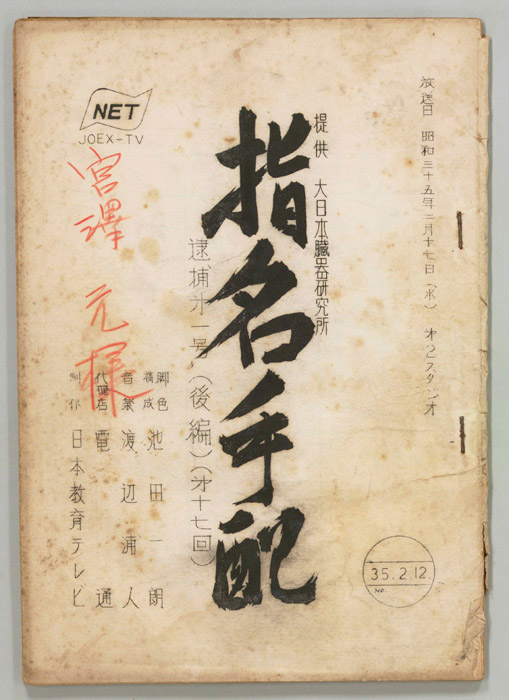 放送日 昭和三十五年二月十七日(水) 才2スタジオ
提供 大日本臓器研究所
指名手配
逮捕才一号(後編)(才十七回)
脚色 池田一朗
構成
音楽 渡辺浦人
代理店 電通
制作 日本教育テレビ
NET
JOEX-TV
宮澤元様
35.2.12
NO.